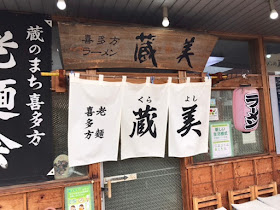 喜多方
ラーメン
蔵美
蔵のまち喜多方
老麺会
くら よし
蔵美
喜多方
老麺
ラーメン